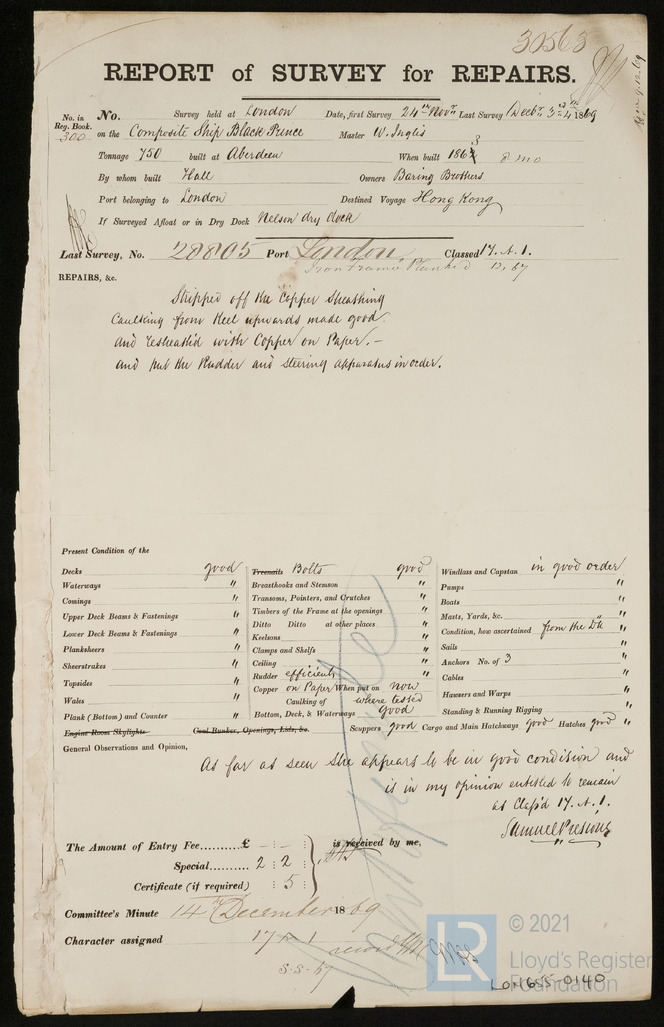 30563
REPORT of SURVEY for REPAIRS.
No. in Reg. Book. 300
No. Survey held at London Date, first Survey 24th Novr. Last Survey Decbr. 3rd 4th 1869
on the Composite Ship Black Prince Master W. Inglis
Tonnage 750 built at Aberdeen When built 1863 8 mo
By whom built Hall Owners Baring Brothers
Port belonging to London Destined Voyage Hong Kong
If Surveyed Afloat or in Dry Dock Nelson dry dock
Last Survey, No. 28805 Port London Classed 17. A. 1.
Iron Frame Planked 12. 67
REPAIRS, &c.
Stripped off the Copper Sheathing
Caulking from Keel upwards made good
and resheath'd with Copper on Paper. –
and put the Rudder and steering apparatus in order.
Present Condition of the
Decks good
Waterways "
Comings "
Upper Deck Beams & Fastenings "
Lower Deck Beams & Fastenings "
Planksheers "
Sheerstrakes "
Topsides "
Wales "
Plank (Bottom) and Counter "
Engine Room Skylights
Coal Bunker, Openings, Lids, &c.
Treenails Bolts good
Breasthooks and Stemson "
Transoms, Pointers, and Crutches "
Timbers of the Frame at the openings "
Ditto Ditto at other places "
Keelsons "
Clamps and Shelfs "
Ceiling "
Rudder efficient "
Copper on Paper When put on now
Caulking of where tested
Bottom, Deck, & Waterways good
Scuppers good Cargo and Main Hatchways good Hatches good "
Windlass and Capstan in good order
Pumps "
Boats "
Masts, Yards, &c. "
Condition, how ascertained from the Dk "
Sails "
Anchors No. of 3 "
Cables "
Hawsers and Warps "
Standing & Running Rigging "
General Observations and Opinion,
As far as seen she appears to be in good condition and
is in my opinion entitled to remain
as Class'd 17. A. 1.
Samuel Presious
The Amount of Entry Fee.......... £ - : - : is received by me,
Special.......... 2 : 2 :
Certificate (if required) : 5 :
Committee's Minute 14th December 1869
Character assigned 17 A 1
S.S. 67
LR
© 2021
Lloyd's Register
Foundation
LON655-0140